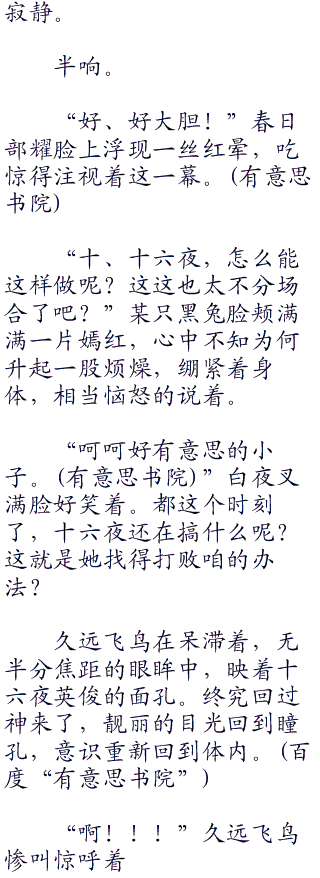 寂静。
半响。
“好、好大胆！”春日
部耀脸上浮现一丝红晕，吃
惊得注视着这一幕。(有意思
书院)
“十、十六夜，怎么能
这样做呢？这这也太不分场
合了吧？”某只黑兔脸颊满
满一片嫣红，心中不知为何
升起一股烦燥，绷紧着身
体，相当恼怒的说着。
“呵呵好有意思的小
子。(有意思书院)”白夜叉
满脸好笑着。都这个时刻
了，十六夜还在搞什么呢？
这就是她找得打败咱的办
法？
久远飞鸟在呆滞着，无
半分焦距的眼眸中，映着十
六夜英俊的面孔。终究回过
神来了，靓丽的目光回到瞳
孔，意识重新回到体内。(百
度“有意思书院”)
“啊！！！”久远飞鸟
惨叫惊呼着